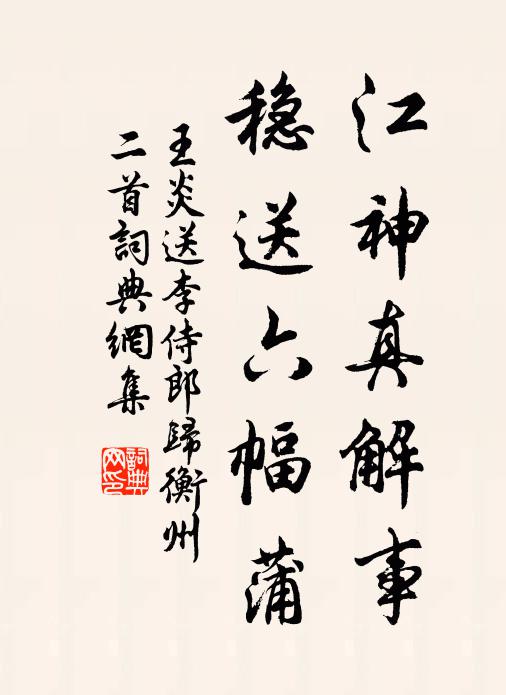 江神真解事
稳送六幅蒲
王炎送李侍郎歸衡州
二首詞典網集
詞典
网印